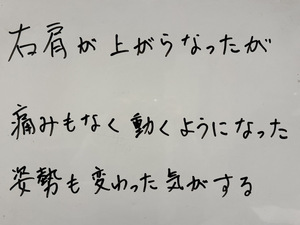 右肩が上がらなったが
痛みもなく動くようになった
姿勢も変わった気がする